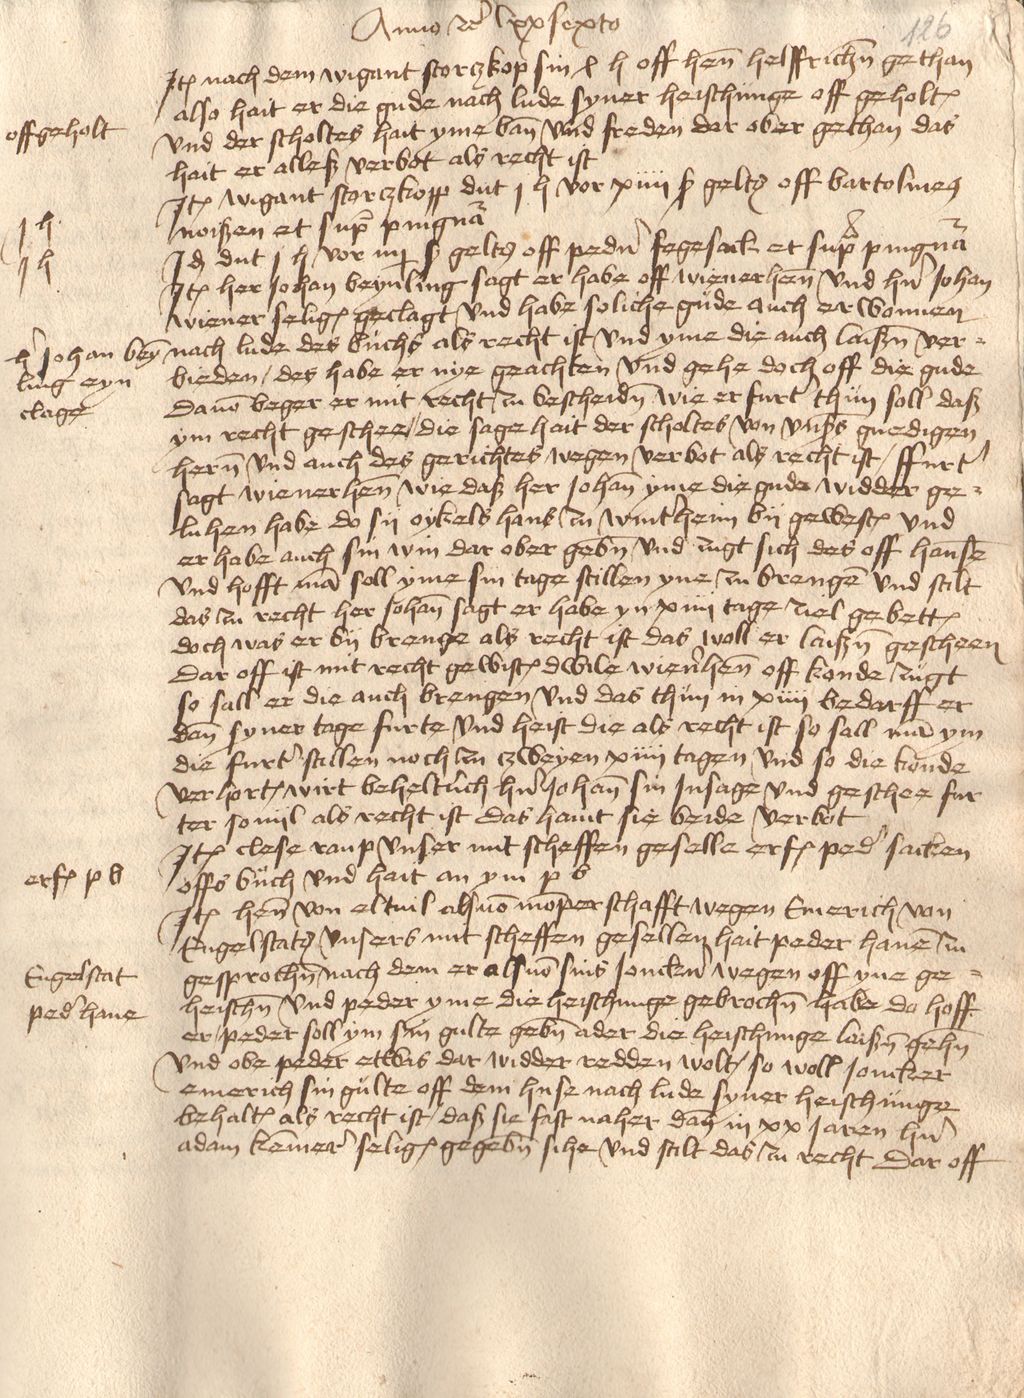 Anno rc lxxsexto
126
Itē nach dem wigant storczkop sin x h off hen̄ helffrichn̄ gethan
also hait er die gude nach lude syner heischunge off geholtē
offgeholt
vnd der scholtes hait yme ban̄ vnd freden dar ober gethan das
hait er alleß verbot als recht ist
Itē wigant storczkopp dut j h vor xiiii ß geltꝫ off bartolmeꝰ
j h
noißen et supᵃ pingnā
j h
Iꝫ dut j h vor iiij ß geltꝫ off pedir fegesack et supᵃ pingnā
Itē her Johan beynling sagt er habe off wienerhen̄ vnd hr̄ Johan
wiener seligē geclagt vnd habe soliche gude auch erwonnen
h̄ Johan bey
nach lude des buchs als recht ist vnd yme die auch laißn̄ ver-
ling eyn
bieden / des habe er nye geachten vnd gehe doch off die gude
clage
dauō beger er mit recht zu bescheidn̄ wie er furt thun soll daß
ym recht geschee / die sage hait der scholtes von vnßs gnedigen
hern̄ vnd auch des gerichtes wegen verbot als recht ist / ffurt
sagt wienerhen̄ wie daß her Johan̄ yme die gude widder ge-
luhen habe do sij oykels hans zu wintheim bij gewestē vnd
er habe auch sin win dar ober gebn̄ vnd zugt sich des off hansē
vnd hofft mā soll yme sin tage stillen yne zu brengē vnd stilt
das zu recht her Johan̄ sagt er habe yn xiiii tage ziel gebettē
doch was er bij brenge als recht ist das woll er laißn̄ gescheen
dar off ist mit recht gewistē dwile wienerhen̄ off konde zugt
so sall er die auch brengen vnd das thun in xiiii bedarff er
dan̄ syner tage furte vnd heist die als recht ist so sall mā ym
die furt stillen noch zu czweyen xiiii tagen vnd so die konde
verhortē wirt beheltnich hr̄ Johan̄ sin Insage vnd geschee fur
ter so viil als recht ist das haint sie beide verbot
Itē clese raup vnser mit scheffen geselle erfē ped sacken
erfē p b
offs buch vnd hait an ym p b
Itē hen̄ von eltuil als uō momperschafft wegen Emerich von
Engelstatꝫ vnsers mit scheffen gesellen hait peder hanē zu
Engelstat
gesprochn̄ nach dem er als uō sins Jonckern wegen off yne ge-
ped hane
heischn̄ vnd peder yme die heischunge gebrochn̄ habe do hoff
er / peder soll ym sin gulte gebn̄ ader die heischunge laißn̄ gehn̄
vnd obe peder etwas dar widder redden wolt / so woll Joncker
emerich sin gülte off dem huse nach lude syner heischunge
behaltē als recht ist / daß sie fast naher dan̄ in xx Jaren hr̄
adam kemer seligē gegebn̄ sihe vnd stilt das zu recht dar off